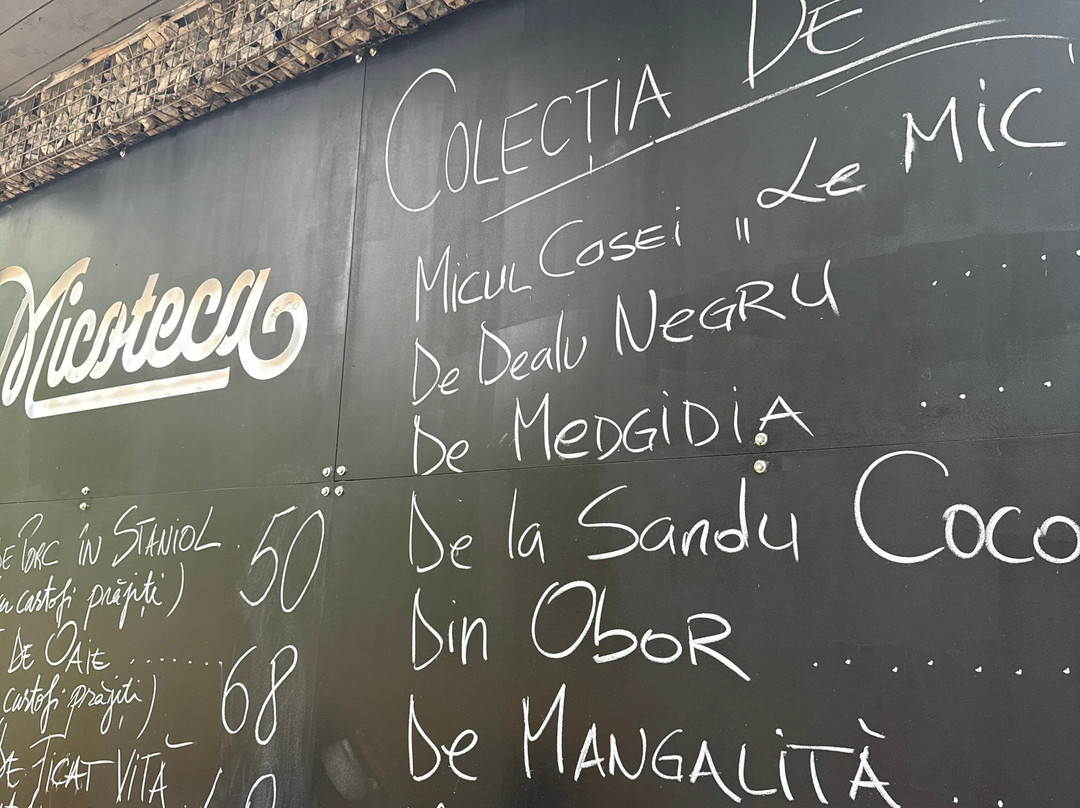 Micoteca
DE PORC ÎN STANIOL . 50
cu cartofi prăjiți)
DE OAIE ........ 68
cartofi prăjiți)
DE FICAT VITĂ
COLECȚIA DE
MICUL COSEI „Le MIC
De Dealu NEGRU ....
De MEDGIDIA ....
De la Sandu COCO
Din OBOR ........
De MANGALIȚĂ ...